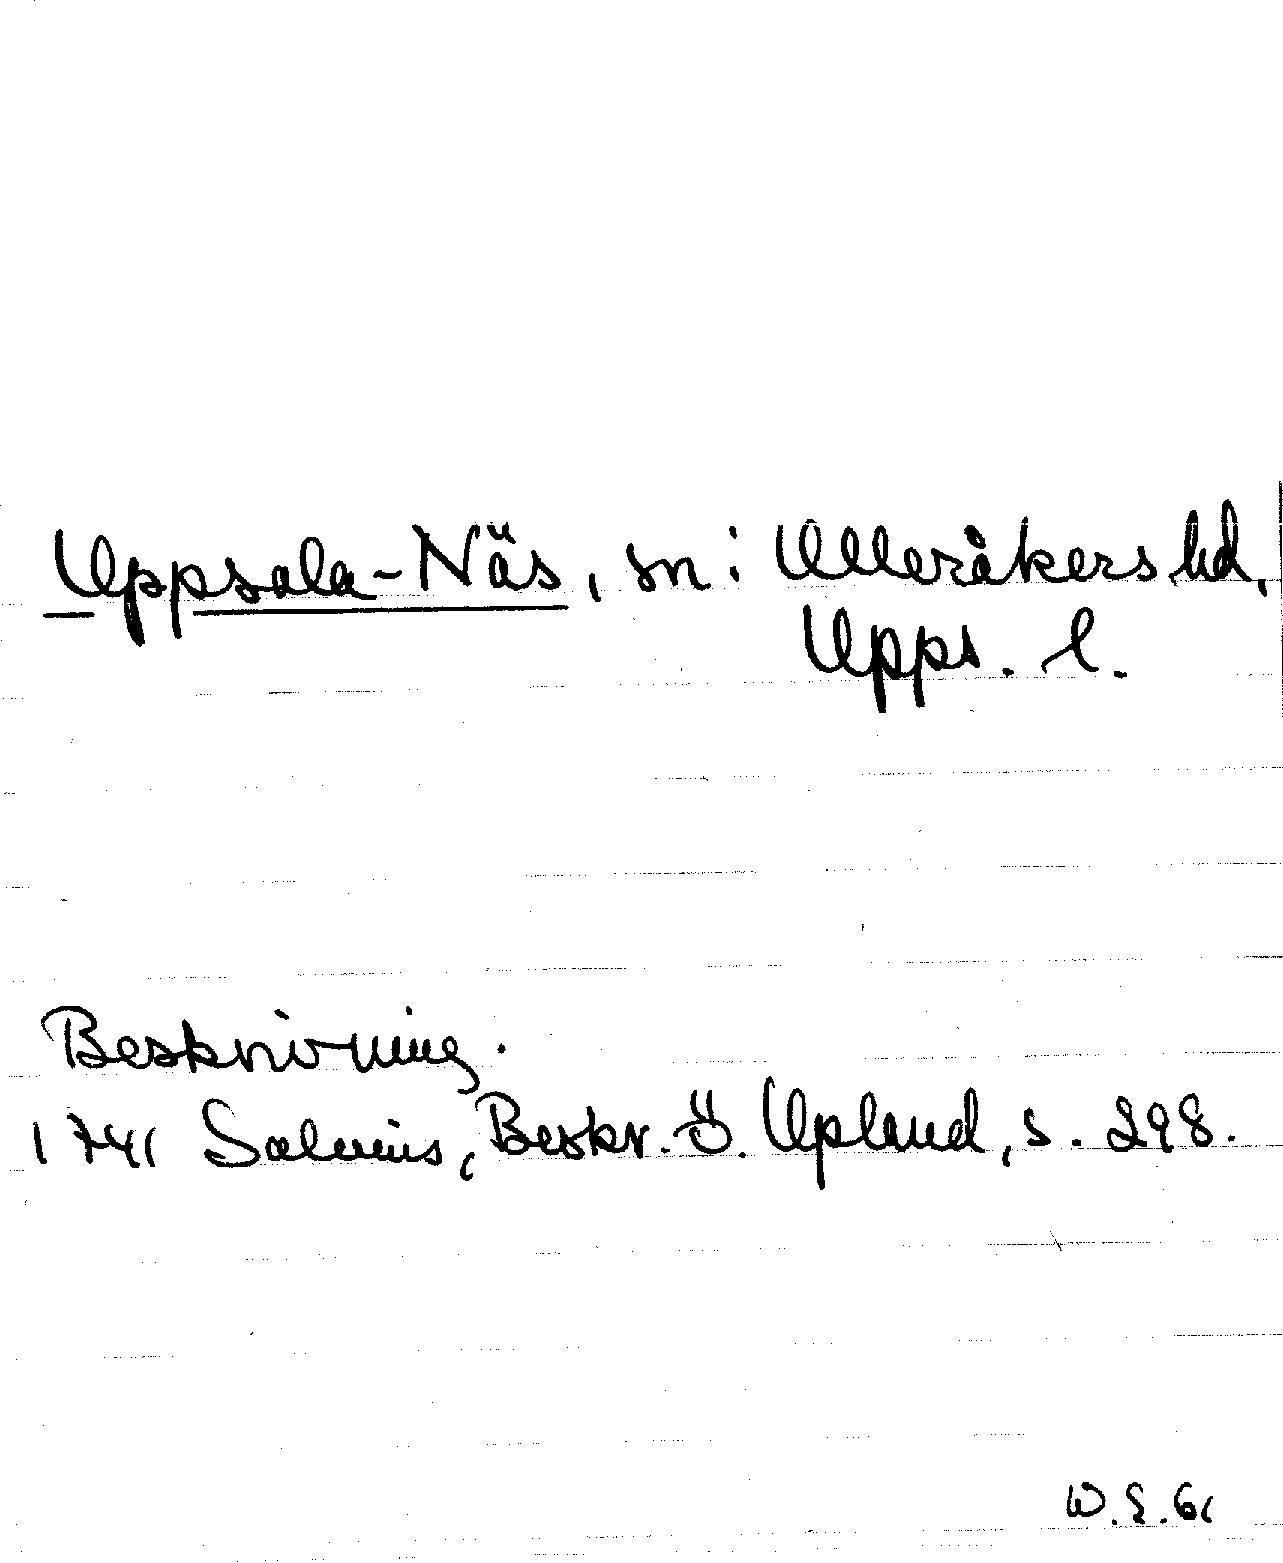 Uppsala-Näs, sn: Ulleråkers hd,
Upps. l.
Beskrivning.
1741 Salenius, Beskr. Ö. Upland, s. 298.
W.S.61